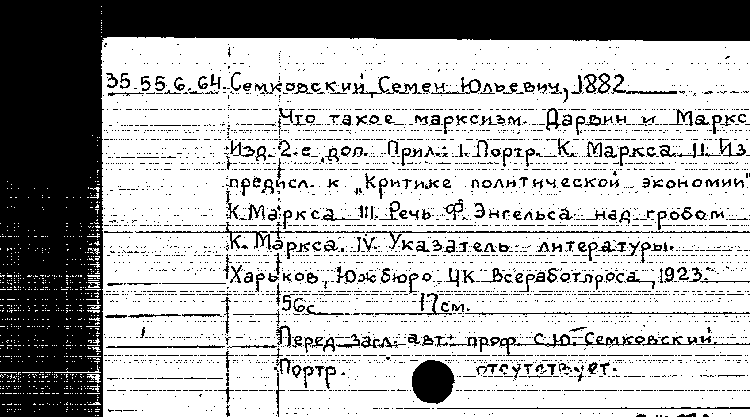 35.55.6.64 Семковский, Семен Юльевич, 1882
Что такое марксизм. Дарвин и Маркс
Изд. 2-е доп. Прил.: I. Портр. К. Маркса. II. Из
предисл. к „Критике политической экономии"
К. Маркса. III. Речь Ф. Энгельса над гробом
К. Маркса. IV. Указатель литературы.
Харьков, Южбюро ЦК Всеработпроса, 1923.
56с 17см.
Перед загл. авт.: проф. С.Ю. Семковский.
Портр. отсутствует.